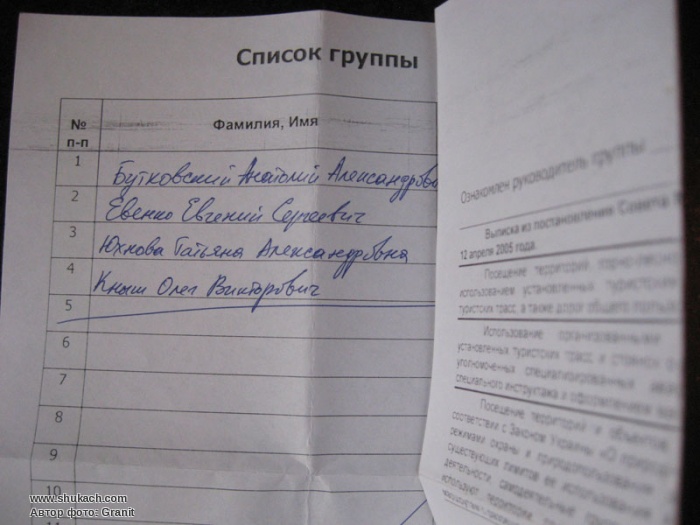 Список группы
№ п-п
Фамилия, Имя
1 Бутковский Анатолий
2 Евенко Евгений Сергеевич
3 Юхнова Татьяна Александровна
4 Кныш Олег Викторович
5
6
7
8
9
10
Ознакомлен руководитель группы
Выписка из постановления Совета
12 апреля 2005 года.
Посещение территорий
использованием установленных туристских
туристских трасс, а также дорог общего
Использование организованными
установленных туристских трасс и стоянок
уполномоченных специализированных
специального инструктажа и оформлением
Посещение территорий и объектов
соответствии с Законом Украины
режимами охраны и природопользования
существующих лимитов ее использования
деятельности, самодеятельные
используют территории
www.shukach.com
Автор фото: Granit